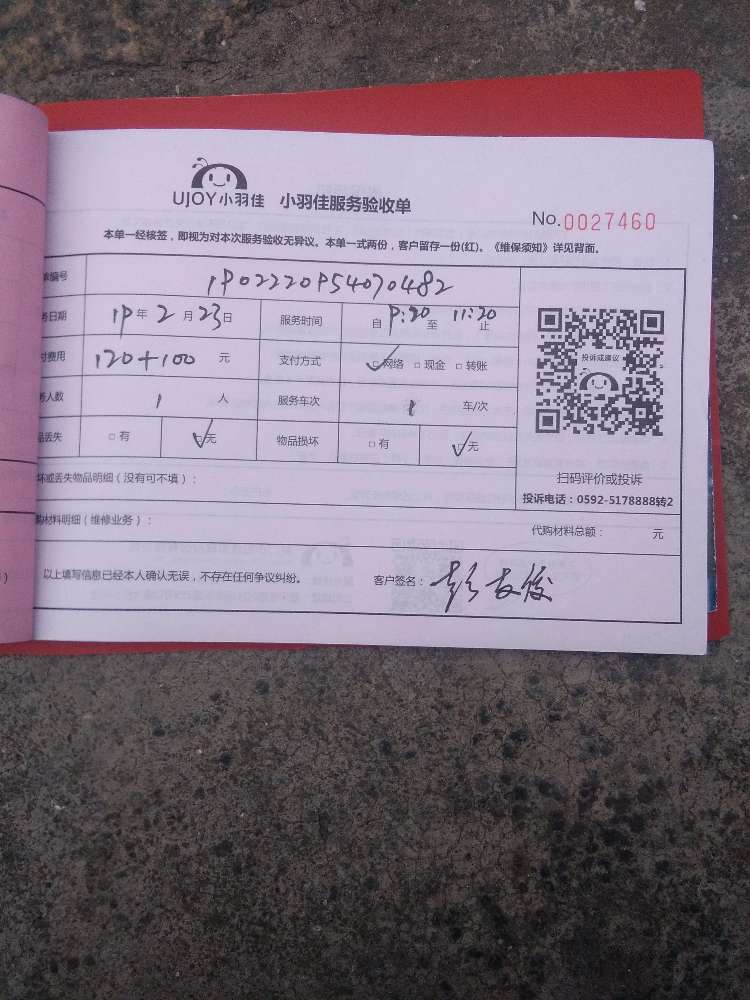 UJOY小羽佳 小羽佳服务验收单
No.0027460
本单一经核签，即视为对本次服务验收无异议。本单一式两份，客户留存一份(红)。《维保须知》详见背面。
单编号 1902220954070482
务日期 19年2月23日 服务时间 自9:20至11:20止
付费用 120+100元 支付方式 □网络 □现金 □转账
务人数 1人 服务车次 1车/次
品丢失 □有 □无 物品损坏 □有 □无
投诉或建议
扫码评价或投诉
投诉电话：0592-5178888转2
坏或丢失物品明细（没有可不填）：
购材料明细（维修业务）： 代购材料总额： 元
以上填写信息已经本人确认无误，不存在任何争议纠纷。 客户签名：彭友俊